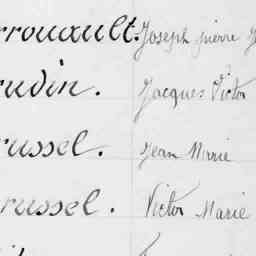 rrouault. Joseph Pierre
rudin. Jacques Victor
russel. Jean Marie
russel. Victor Marie